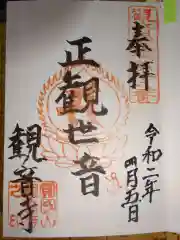 奉拝
正観世音
令和二年
四月五日
観音寺